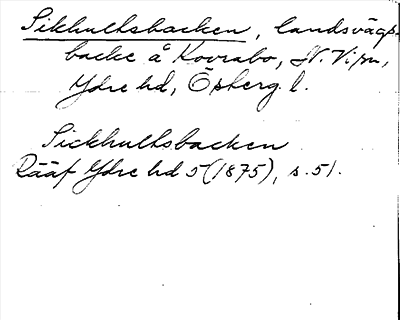 Sikhultsbacken, landsvägs-
backe å Kovrabo, N. Vi sn,
Ydre hd, Östergl.
Sickhultsbacken
Rääf Ydre hd 5 (1875), s. 51.